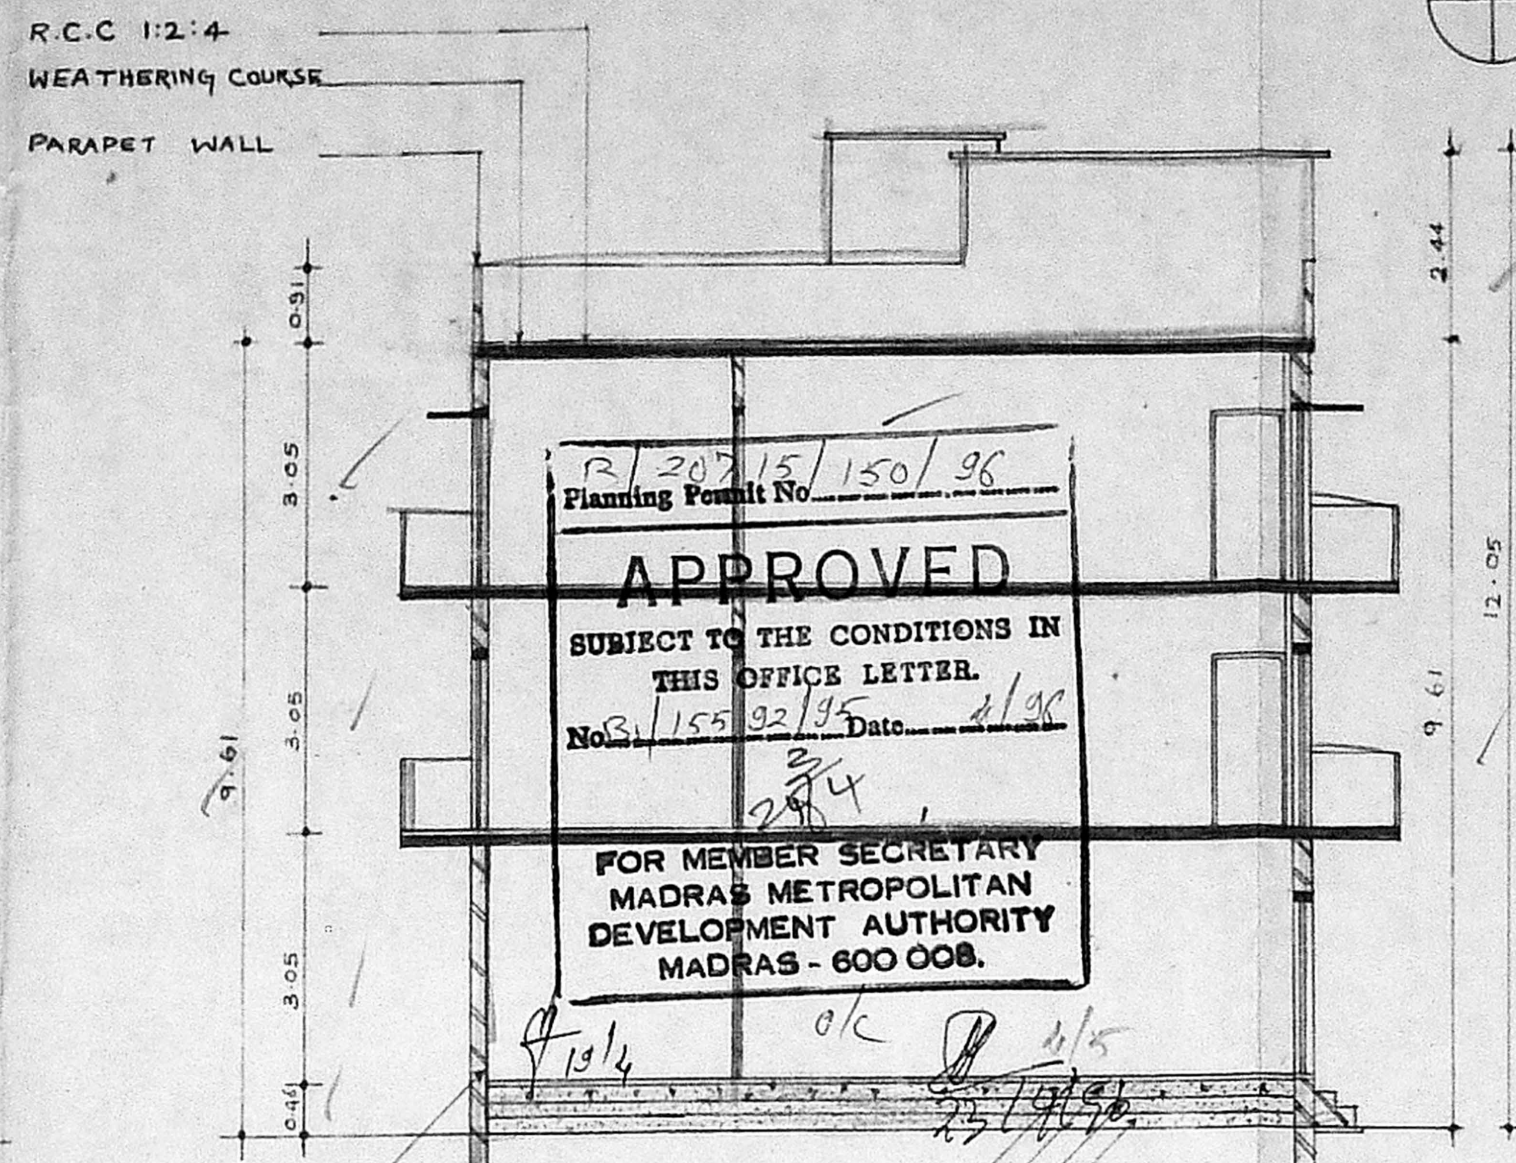 R.C.C 1:2:4
WEATHERING COURSE
PARAPET WALL
0.91
3.05
3.05
3.05
0.46
9.61
2.44
9.61
12.05
R/20715/150/96
Planning Permit No
APPROVED
SUBJECT TO THE CONDITIONS IN
THIS OFFICE LETTER.
No B1/15592/95 Date 4/96
FOR MEMBER SECRETARY
MADRAS METROPOLITAN
DEVELOPMENT AUTHORITY
MADRAS - 600 008.
o/c
19/4